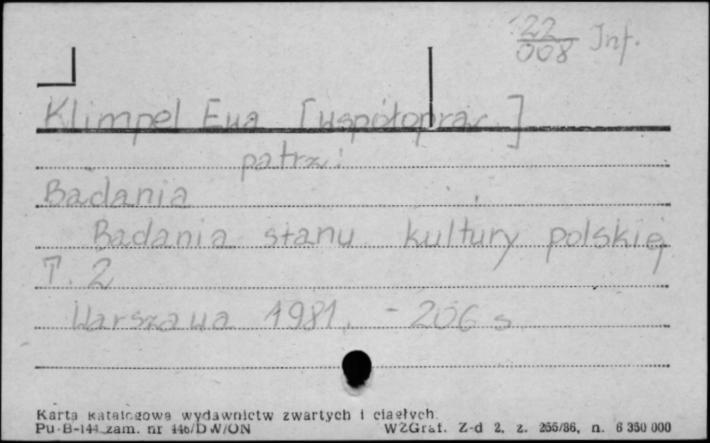 22
008 Inf.
Klimpel Ewa [współoprac.]
patrz:
Badania
Badania stanu kultury polskiej
T. 2
Warszawa 1981, - 206 s.
Karta katalogowa wydawnictw zwartych i ciągłych.
Pu-B-144 zam. nr 446/DW/ON WZGraf. Z-d 2, z. 255/86, n. 6 350 000